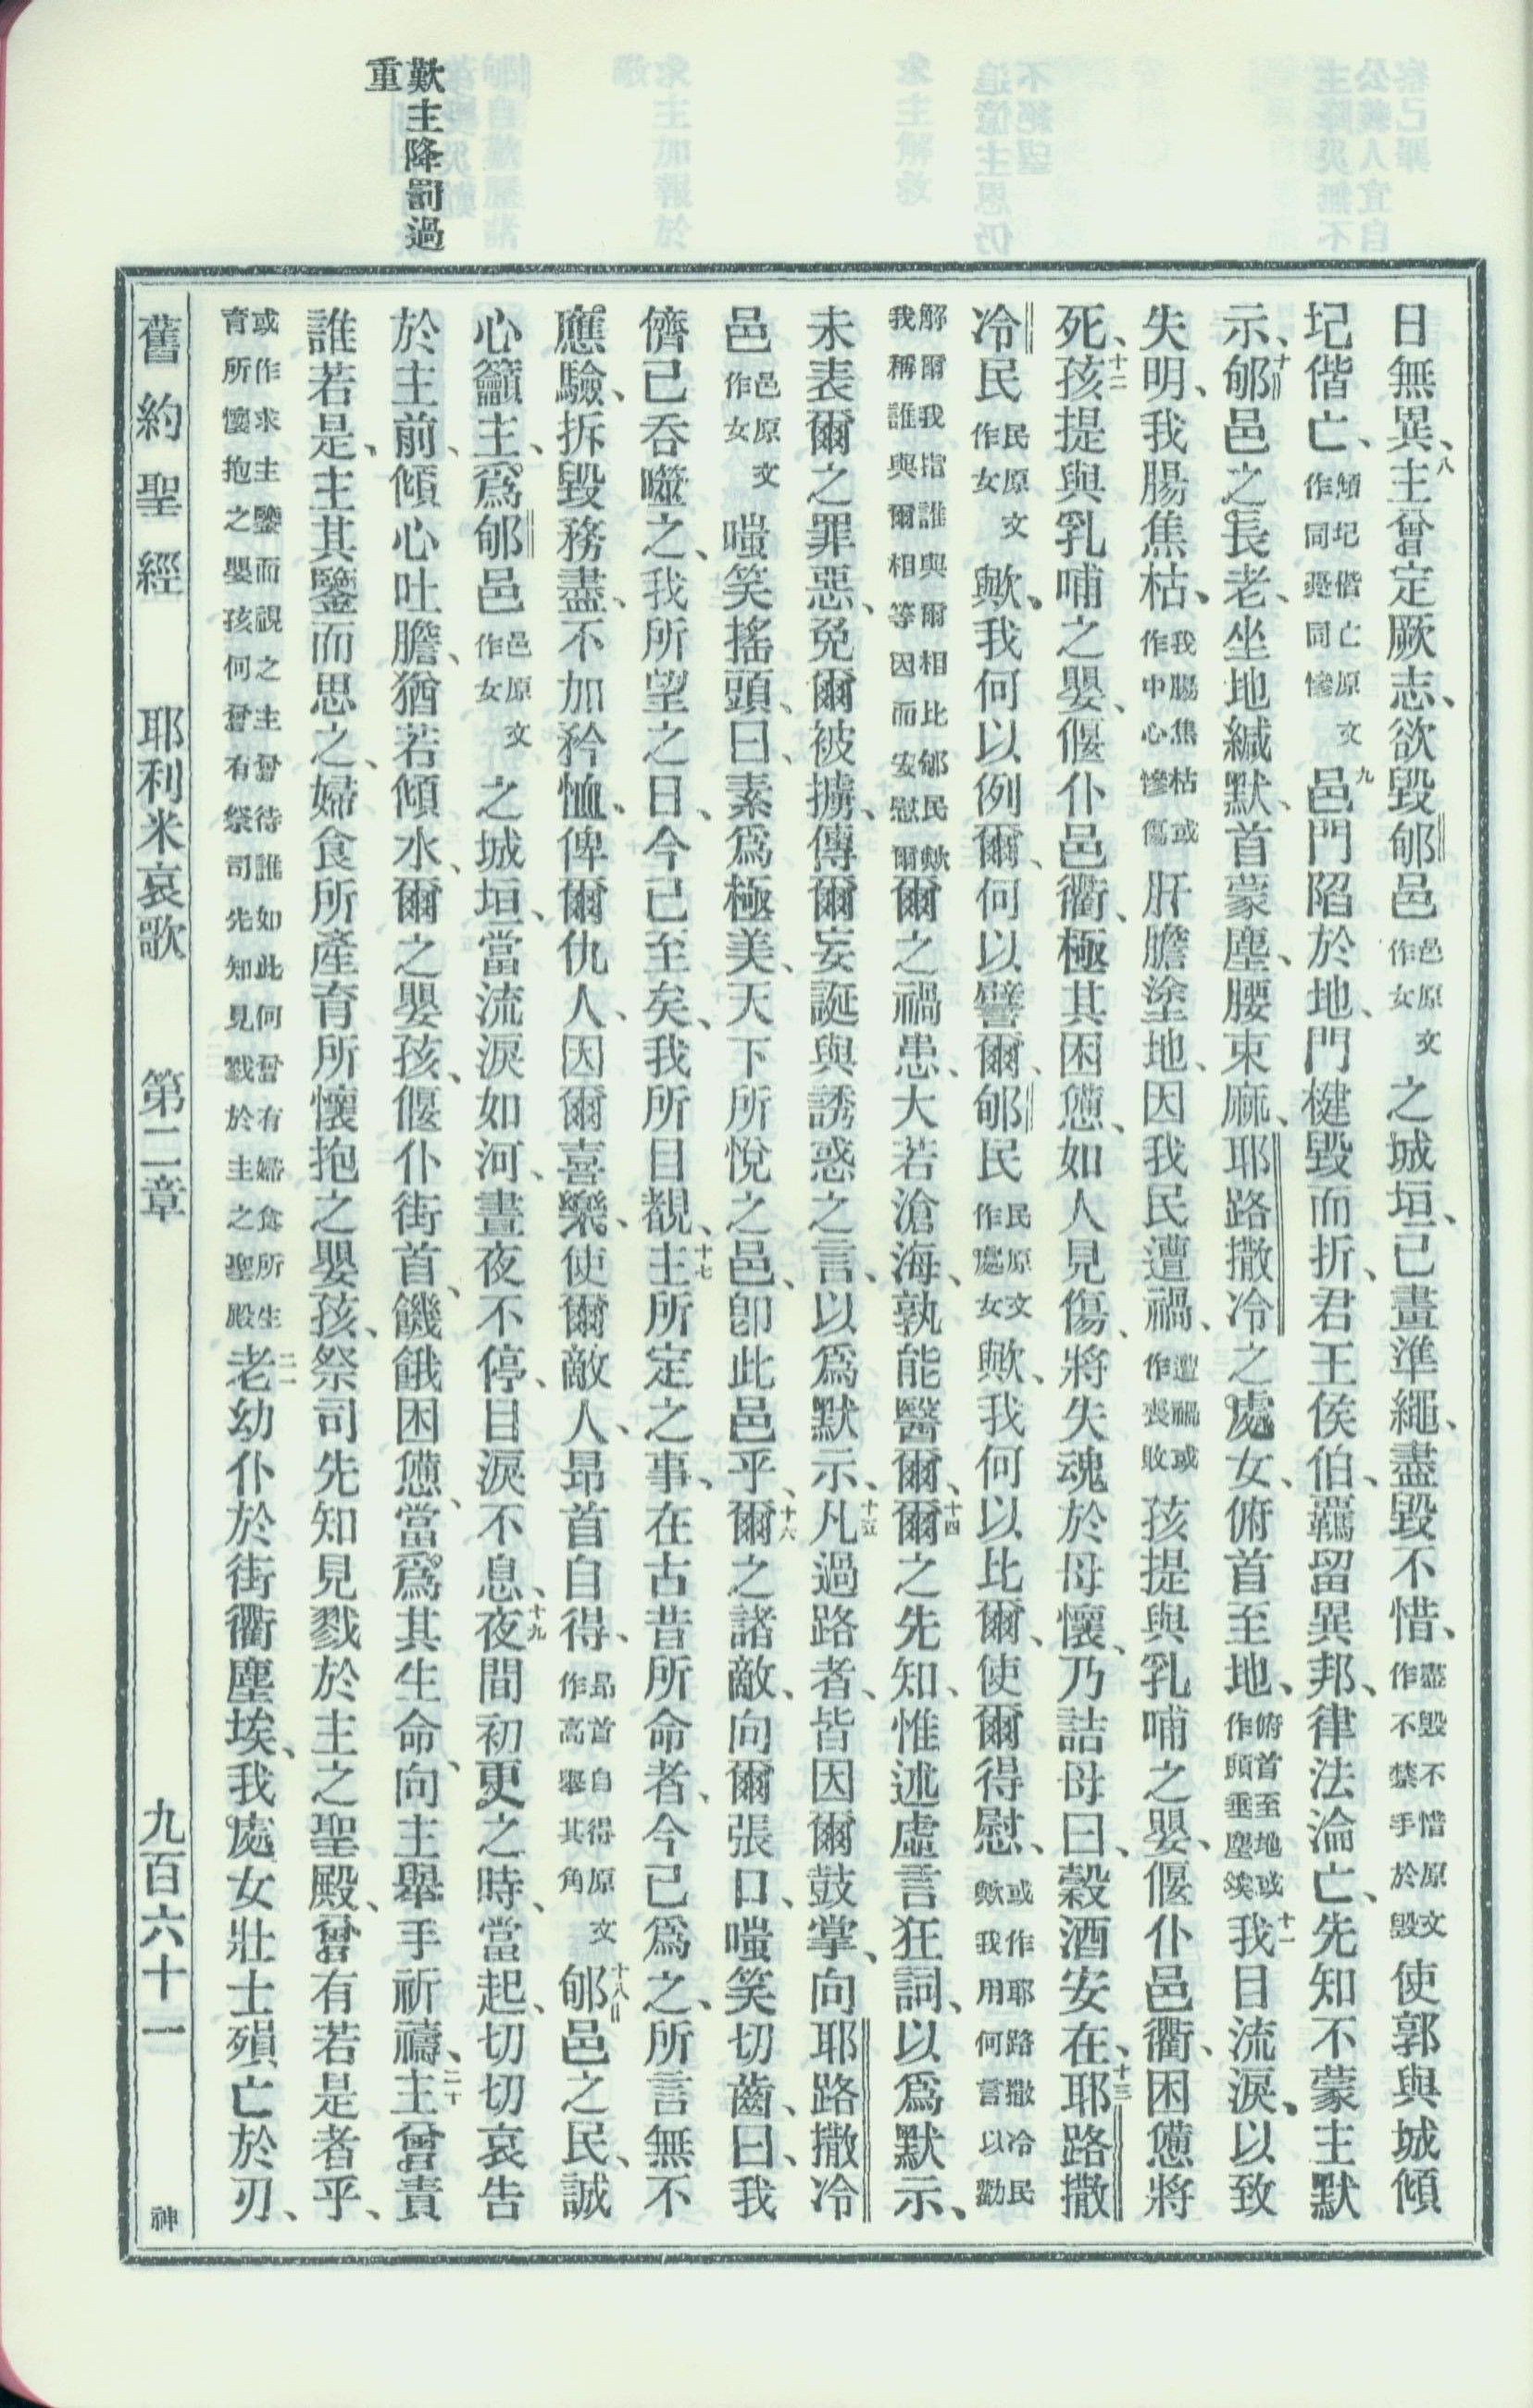 歎主降罰過
重
日無異、八主曾定厥志、欲毀郇邑邑原文作女之城垣、已畫準繩、盡毀不惜、盡毀不惜原文作不禁手於毀使郭與城傾
圮偕亡、傾圮偕亡原文作同憂同慘九邑門陷於地、門楗毀而折、君王侯伯、羈留異邦、律法淪亡、先知不蒙主默
示、十郇邑之長老、坐地緘默、首蒙塵、腰束麻、耶路撒冷之處女、俯首至地、俯首至地或作頭垂塵埃十一我目流淚、以致
失明、我腸焦枯、我腸焦枯或作中心慘傷肝膽塗地、因我民遭禍、遭禍或作喪敗孩提與乳哺之嬰、偃仆邑衢、困憊將
死、十二孩提與乳哺之嬰、偃仆邑衢、極其困憊、如人見傷、將失魂於母懷、乃詰母曰、穀酒安在、十三耶路撒
冷民民原文作女歟、我何以例爾、何以譬爾、郇民民原文作處女歟、我何以比爾、使爾得慰、或作耶路撒冷民歟我用何言以勸
解爾我指誰與爾相比郇民歟我稱誰與爾相等因而安慰爾爾之禍患、大若滄海、孰能醫爾、十四爾之先知、惟述虛言狂詞、以爲默示、
未表爾之罪惡、免爾被擄、傳爾妄誕與誘惑之言、以爲默示、十五凡過路者、皆因爾鼓掌、向耶路撒冷
邑邑原文作女嗤笑搖頭、曰、素爲極美、天下所悅之邑、卽此邑乎、十六爾之諸敵、向爾張口、嗤笑切齒、曰、我
儕已吞噬之、我所望之日、今已至矣、我所目覩、十七主所定之事、在古昔所命者、今已爲之、所言無不
應驗、拆毀務盡、不加矜恤、俾爾仇人、因爾喜樂、使爾敵人、昂首自得、昂首自得原文作高舉其角十八郇邑之民、誠
心籲主、爲郇邑邑原文作女之城垣、當流淚如河、晝夜不停、目淚不息、十九夜間初更之時、當起、切切哀告
於主前、傾心吐膽、猶若傾水、爾之嬰孩、偃仆街首、饑餓困憊、當爲其生命、向主舉手祈禱、二十主曾責
誰若是、主其鑒而思之、婦食所產育所懷抱之嬰孩、祭司先知見戮於主之聖殿、曾有若是者乎、
或作求主鑒而視之主曾待誰如此何曾有婦食所生育所懷抱之嬰孩何曾有祭司先知見戮於主之聖殿二一老幼仆於街衢塵埃、我處女壯士殞亡於刃、
舊約聖經 耶利米哀歌 第二章 九百六十一 神